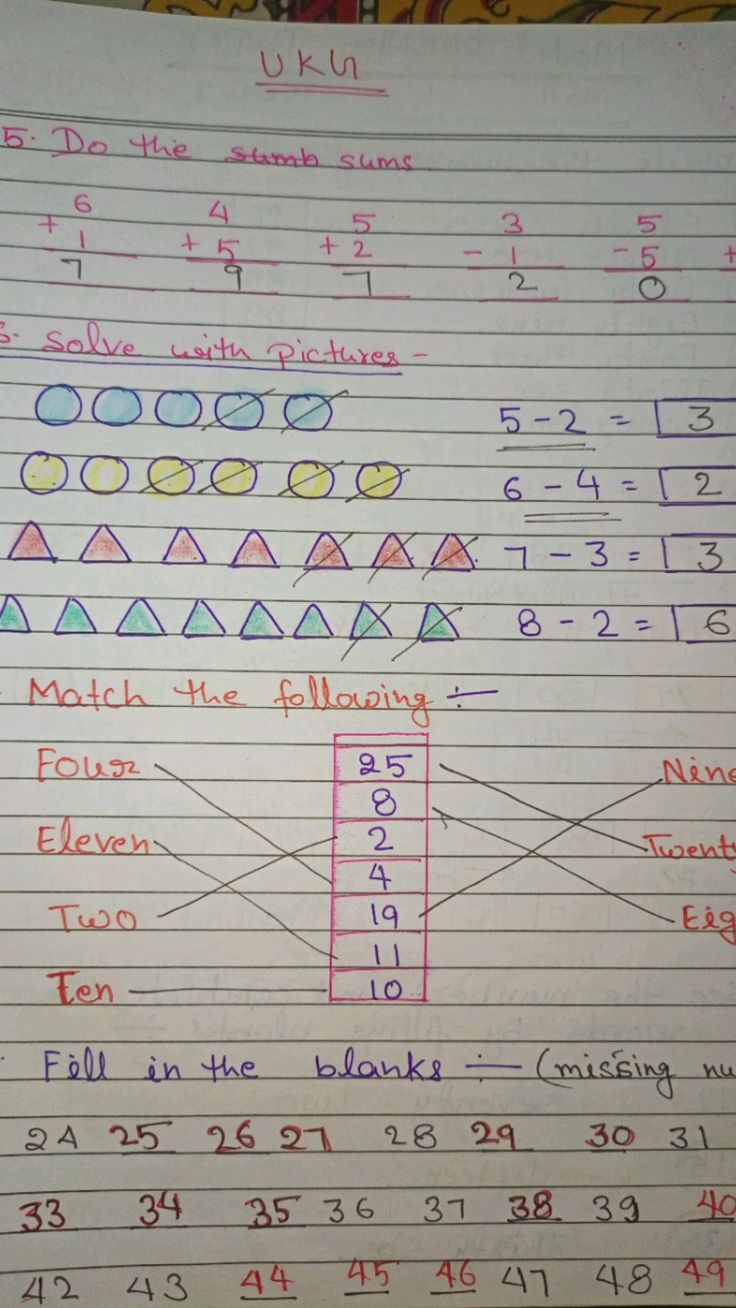 UKG
5. Do the sumb sums
6 4 5 3 5
+ 1 + 5 + 2 - 1 - 5 +
7 9 7 2 0
Solve with pictures -
5 - 2 = 3
6 - 4 = 2
7 - 3 = 3
8 - 2 = 6
Match the following ÷
Four 25 Nine
8
Eleven 2 Twenty
4
Two 19 Eig
11
Ten 10
Fill in the blanks ÷ (missing nu
24 25 26 27 28 29 30 31
33 34 35 36 37 38 39 40
42 43 44 45 46 47 48 49